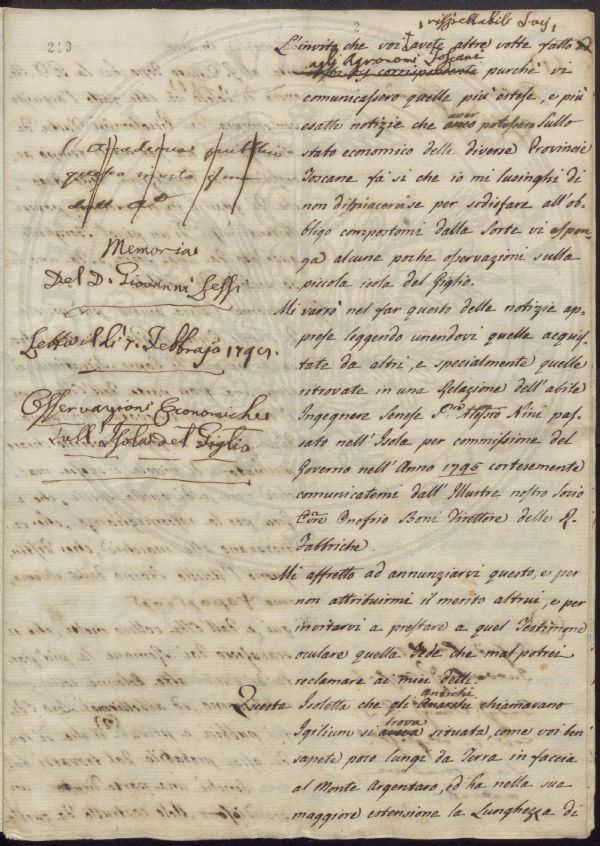 219
2
rispettabili Socj,
L'invito che voi avete altre volte fatto
agli Agronomi Toscani
corrispondente purchè vi
comunicassero quelle più estese, e più
esatte notizie che aver potessero sullo
stato economico delle diverse Provincie
Toscane fà si che io mi lusinghi di
non dispiacervi se per sodisfare all'ob-
bligo comportomi dalla Sorte vi espon-
ga alcune poche osservazioni sulla
piccola isola del Giglio.
Mi varrò nel far questo delle notizie ap-
prese leggendo unendovi quelle acquis-
tate da altri, e specialmente quelle
ritrovate in una Relazione dell'abile
Ingegnere Senese Sig.re Aless.ro Nini pas-
sato nell'Isola per commissione del
Governo nell'Anno 1795 cortesemente
comunicatemi dall'Illustre nostro Socio
Onofrio Boni Direttore delle R.
Fabbriche.
Mi affretto ad annunziarvi questo, e per
non attribuirmi il merito altrui, e per
invitarvi a prestare a quel Testimone
oculare quella Fede che mal potrei
reclamare ai miei detti
Questa Isoletta che gli antichi chiamavano
Igilium si trova situata, come voi ben
sapete poco lungi da Terra in faccia
al Monte Argentaro, ed ha nella sua
maggiore estensione la Lunghezza di
L'Accademia
questo invito
Memoria
Del D. Giovanni Lessi
Letta il dì 7. Febbrajo 1798.
Osservazioni Economiche
Sull'Isola del Giglio